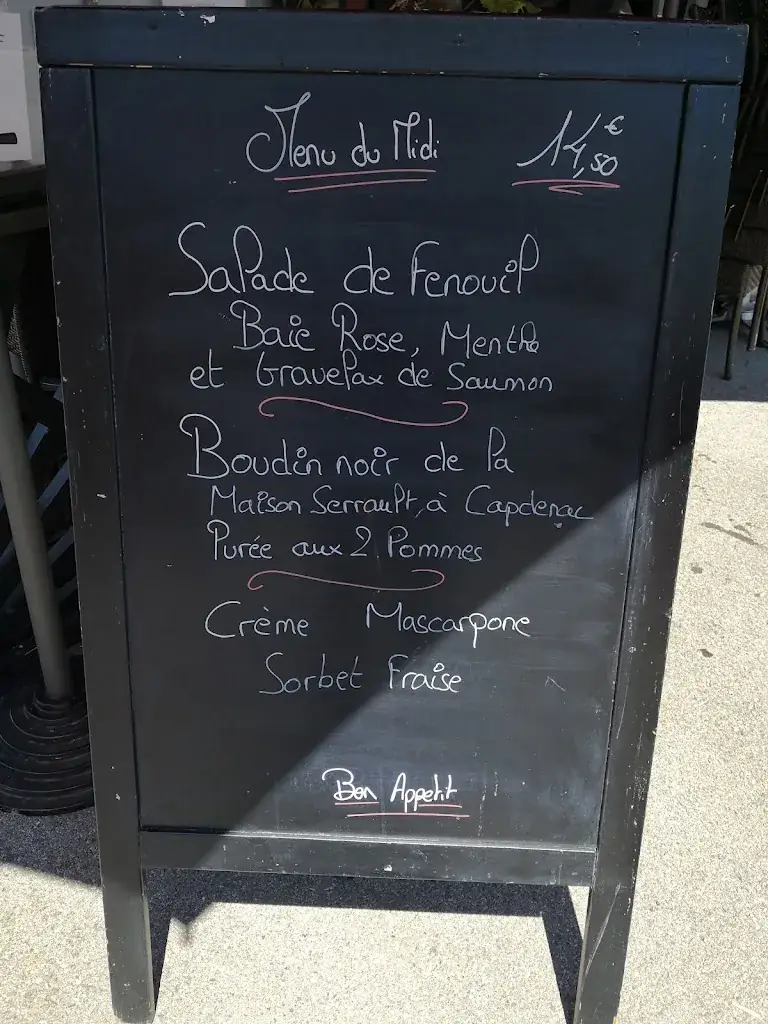 Menu du Midi 14,50€
Salade de Fenouil
Baie Rose, Menthe
et Gravelax de Saumon
Boudin noir de la
Maison Serrault, à Capdenac
Purée aux 2 Pommes
Crème Mascarpone
Sorbet Fraise
Bon Appetit